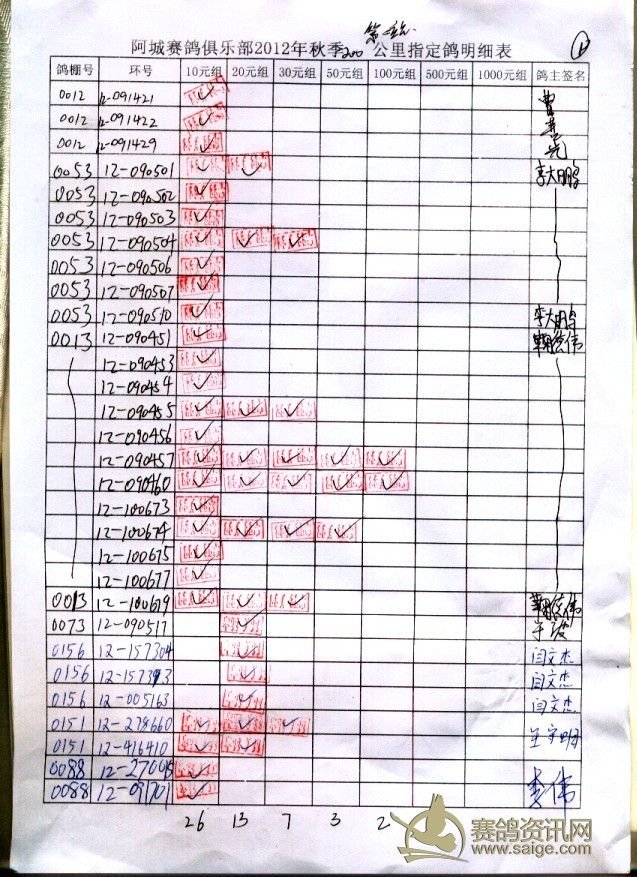 阿城赛鸽俱乐部2012年秋季200公里指定鸽明细表
鸽棚号 环号 10元组 20元组 30元组 50元组 100元组 200元组 500元组 1000元组 鸽主签名
0012 12-091421
0012 12-091422
0012 12-091429
0053 12-090501 李大鹏
0053 12-090502
0053 12-090503
0053 12-090504
0053 12-090506
0053 12-090507
0053 12-090510 李大鹏
0013 12-090451
12-090453
12-090454
12-090455
12-090456
12-090457
12-090460
12-100673
12-100674
12-100675
12-100677
0013 12-100679
0073 12-090517
0156 12-157304 闫文杰
0156 12-157313 闫文杰
0156 12-005163 闫文杰
0151 12-278660
0151 12-416410
0088
0088 李伟
26 13 7 3 2
赛鸽资讯网
www.saige.com